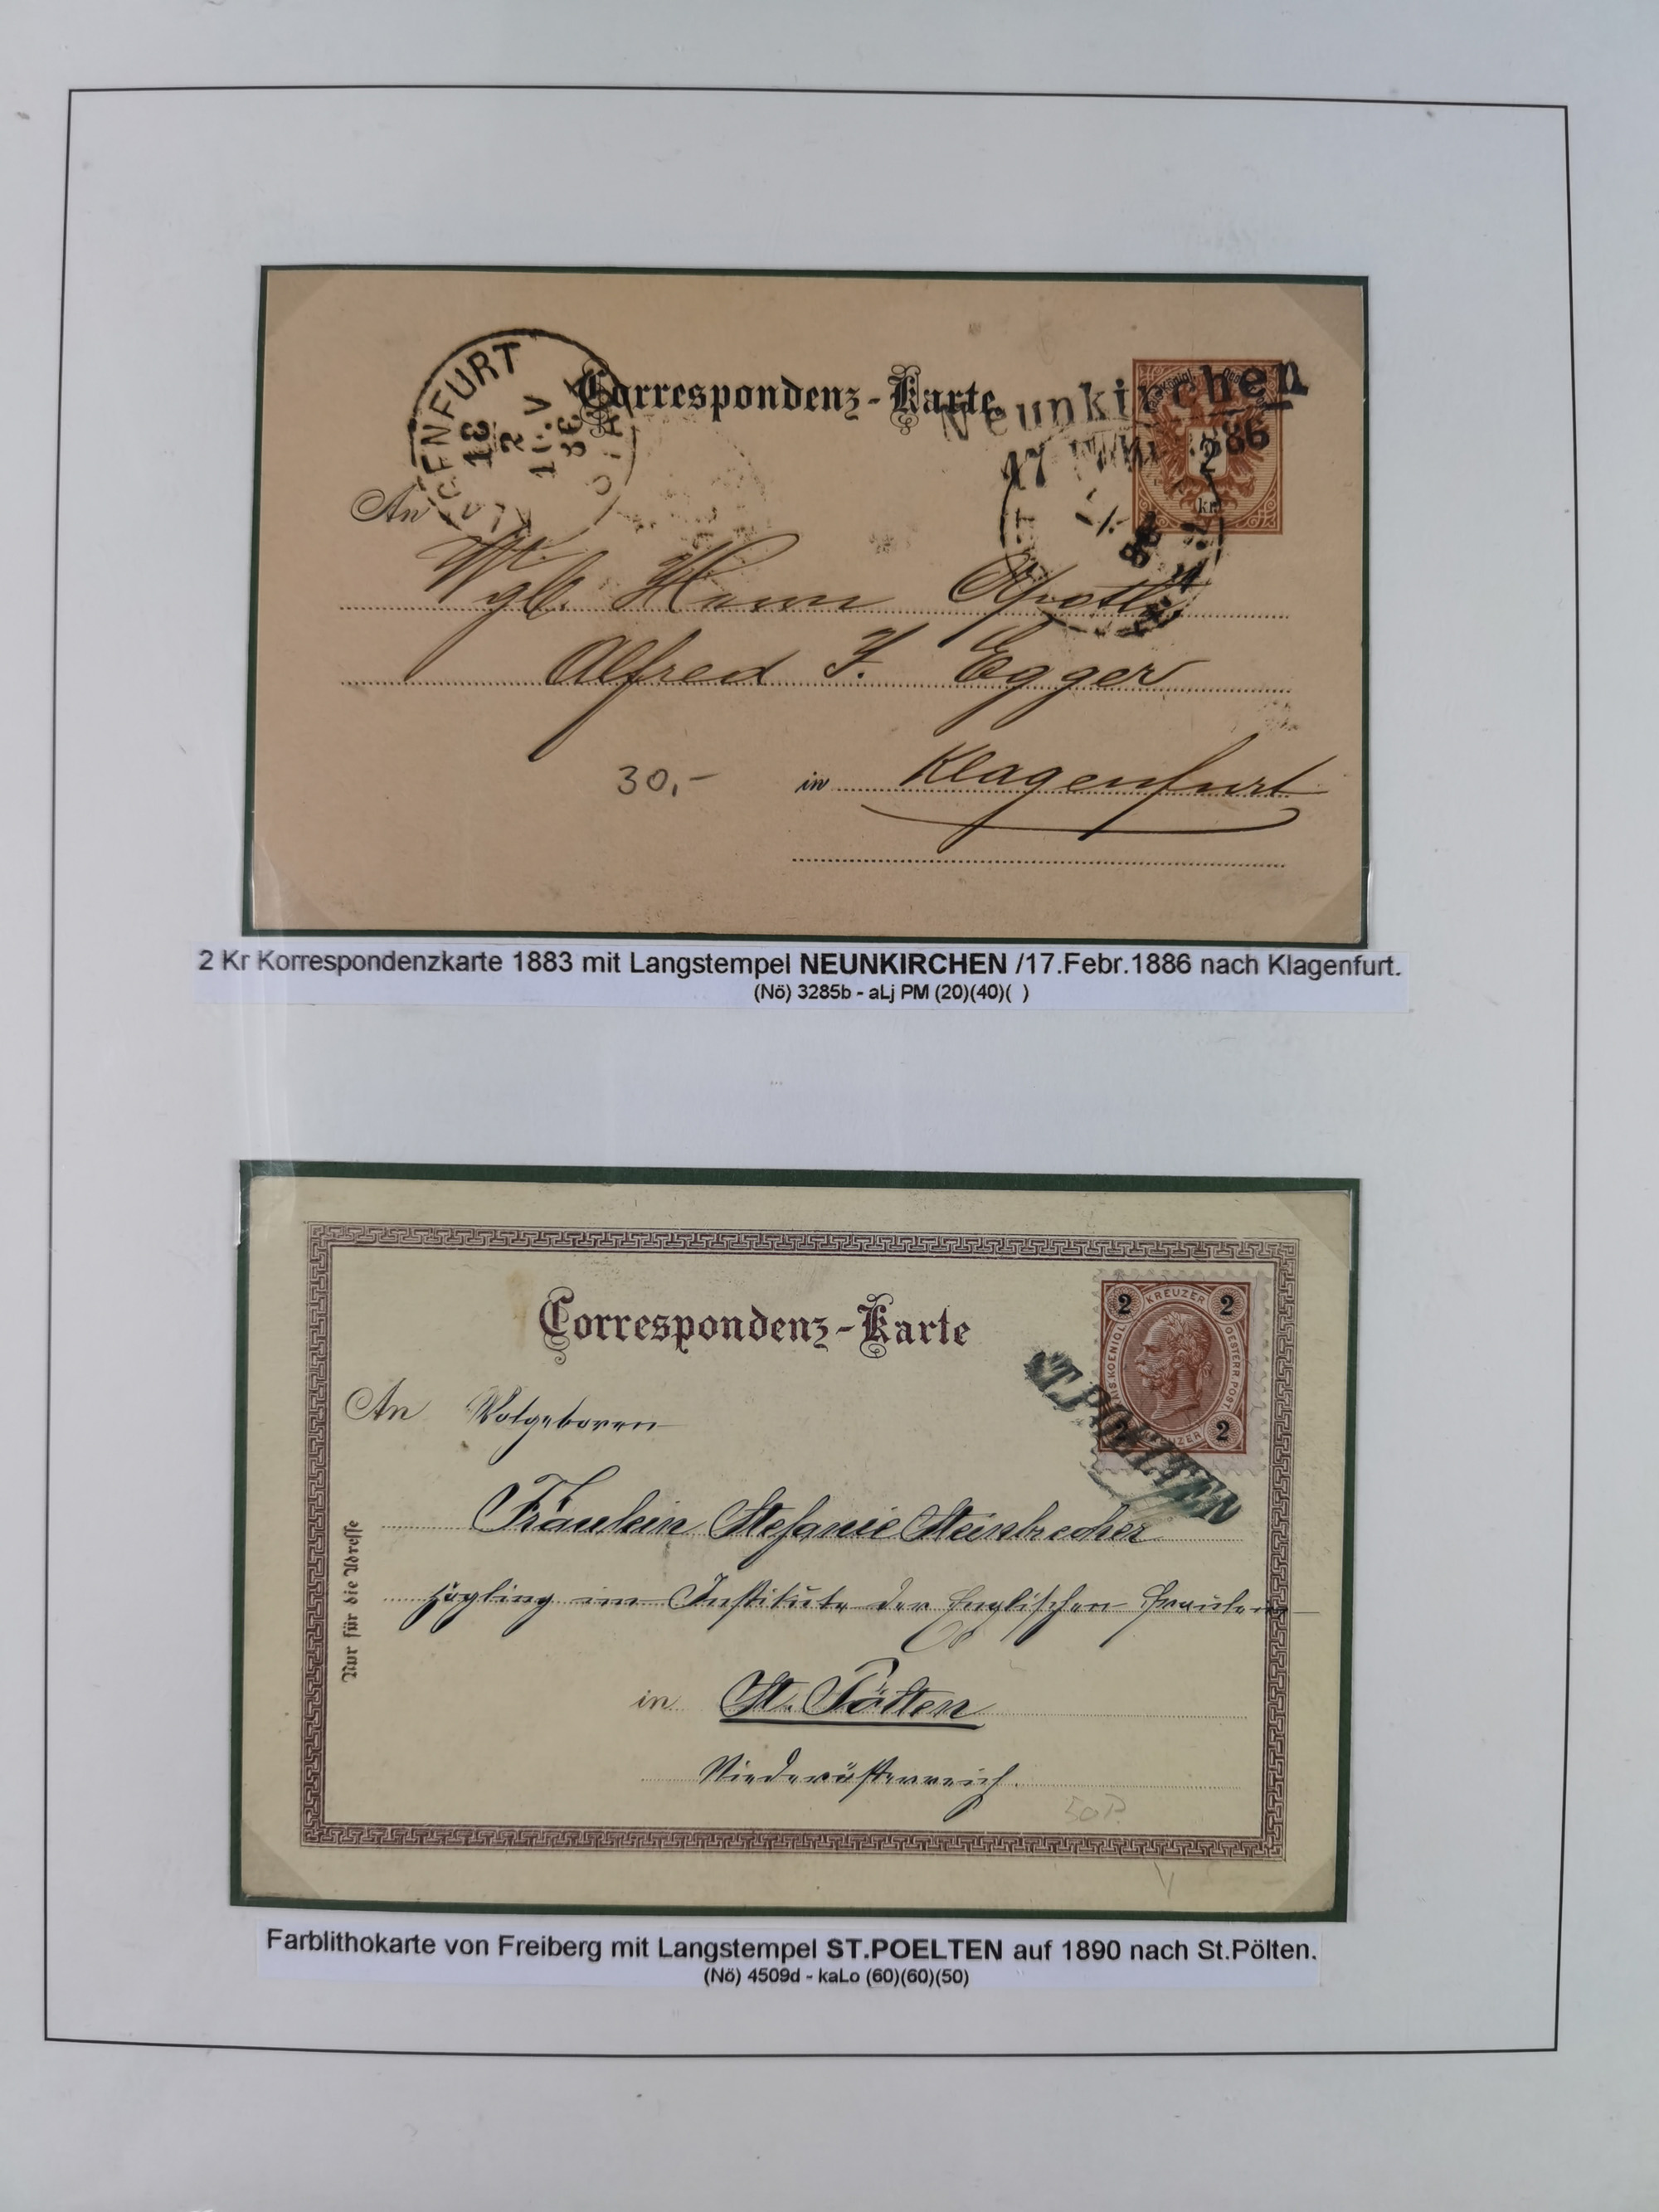 KLAGENFURT
18
2
10.V
86
Correspondenz-Karte
Neunkirchen
17 1886
2
kr
An
Herrn
Alfred F. Egger
30,-
in Klagenfurt
2 Kr Korrespondenzkarte 1883 mit Langstempel NEUNKIRCHEN /17.Febr.1886 nach Klagenfurt.
(Nö) 3285b - aLj PM (20)(40)( )
Correspondenz-Karte
2 KREUZER 2
KAIS. KOENIGL. OESTERR. POST
KREUZER 2
ST.POELTEN
An Wolgeboren
Fräulein Stefanie Steinbrecher
Zögling im Institute der Englischen Fräulein
in St. Pölten
Niederösterreich.
Nur für die Adresse
50P
Farblithokarte von Freiberg mit Langstempel ST.POELTEN auf 1890 nach St.Pölten.
(Nö) 4509d - kaLo (60)(60)(50)